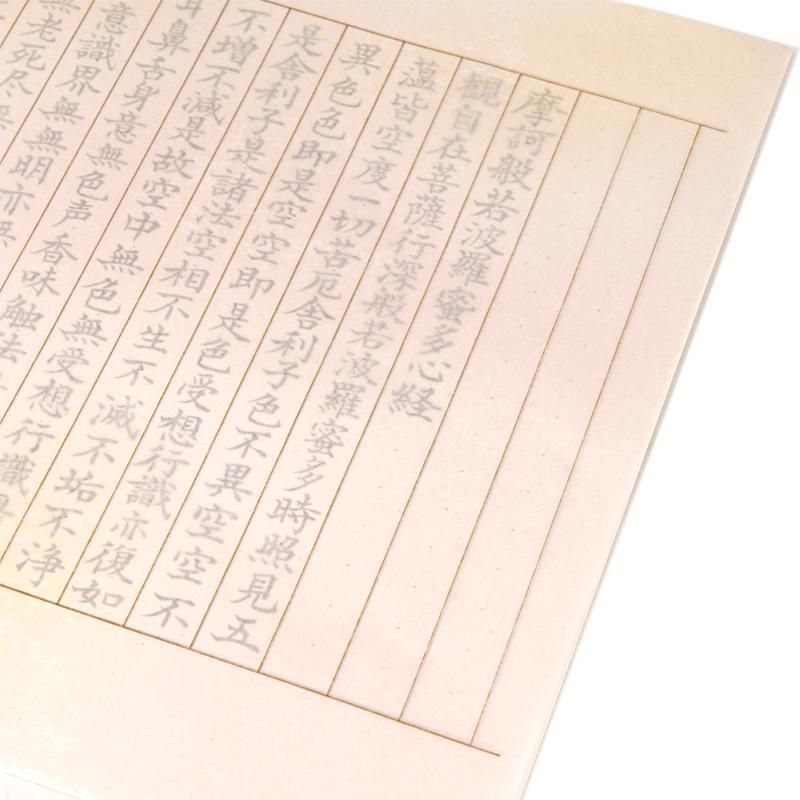 摩訶般若波羅蜜多心経
観自在菩薩行深般若波羅蜜多時照見五
蘊皆空度一切苦厄舎利子色不異空空不
異色色即是空空即是色受想行識亦復如
是舎利子是諸法空相不生不滅不垢不浄
不増不減是故空中無色無受想行識
耳鼻舌身意無色声香味触法
意識界無無明亦無
無老死尽無